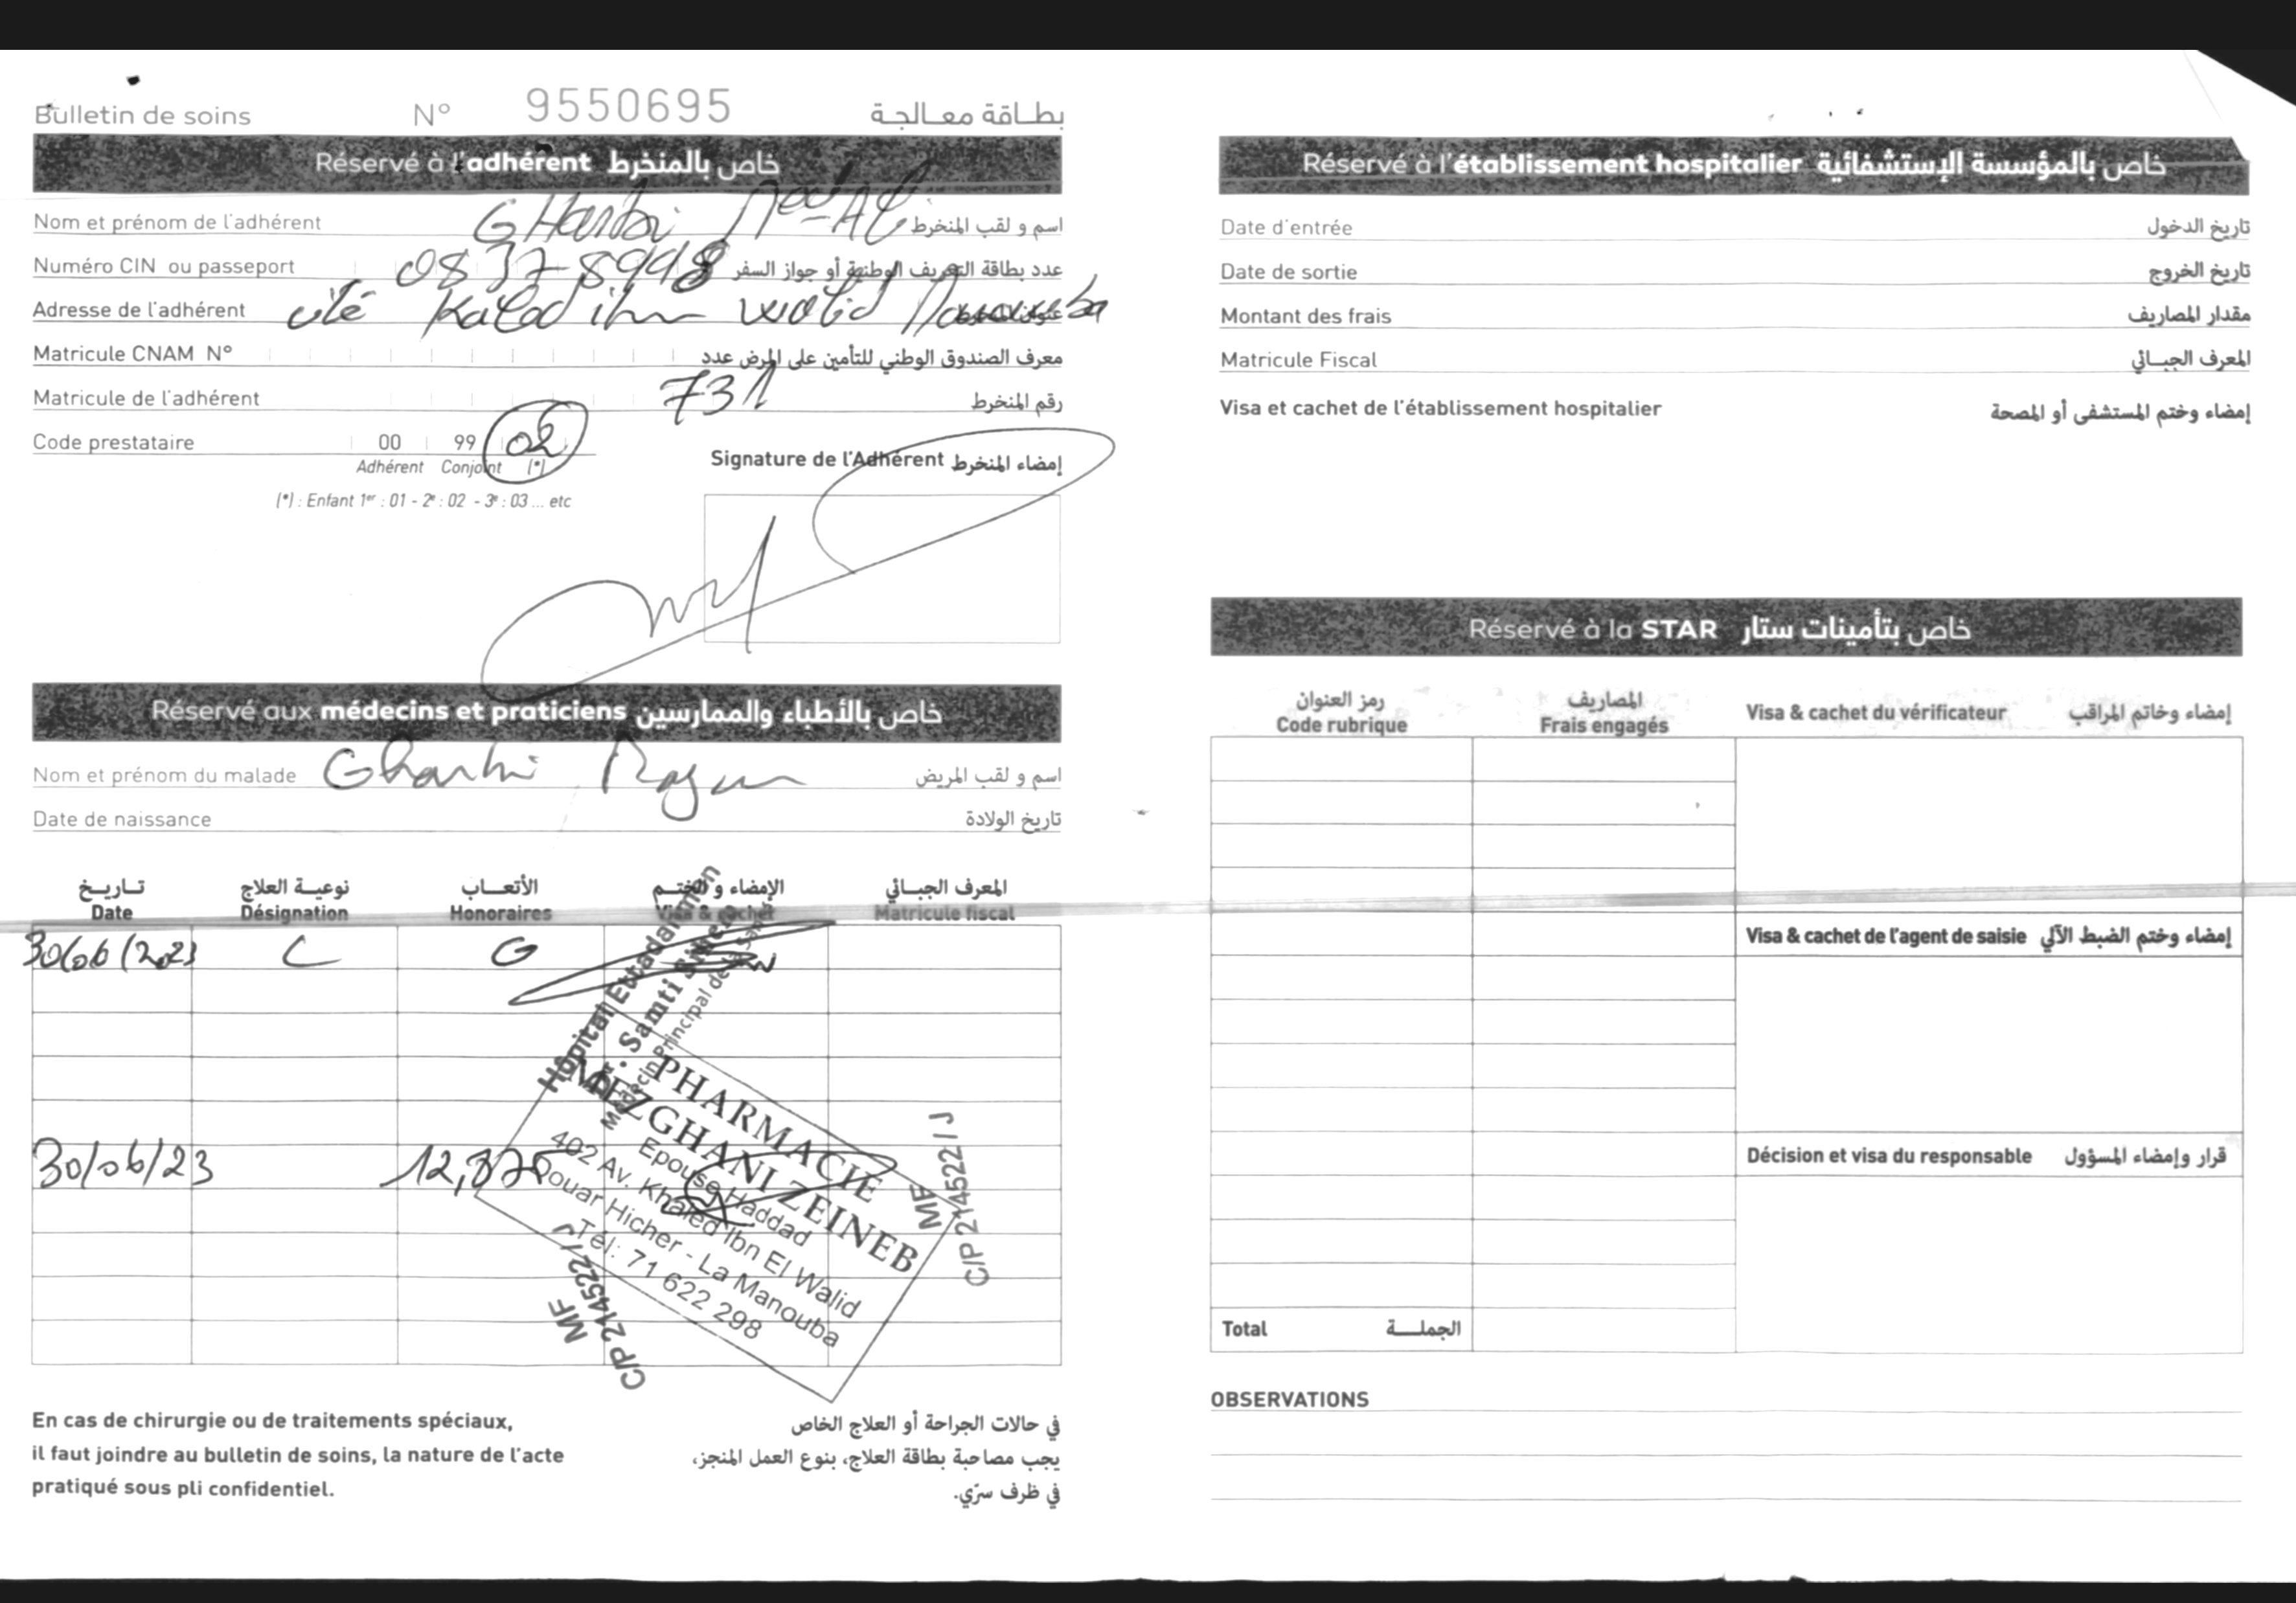 Bulletin de soins N° 9550695 بطاقة معالجة
Réservé à l'adhérent خاص بالمنخرط
Nom et prénom de l'adhérent GHarbi اسم و لقب المنخرط
Numéro CIN ou passeport عدد بطاقة التعريف الوطنية أو جواز السفر
Adresse de l'adhérent cité Kaled walid Manouba
Matricule CNAM N° معرف الصندوق الوطني للتأمين على المرض عدد
Matricule de l'adhérent 731 رقم المنخرط
Code prestataire 00 99 02
Adhérent Conjoint (*)
Signature de l'Adhérent إمضاء المنخرط
(*) : Enfant 1er : 01 - 2e : 02 - 3e : 03 ... etc
Réservé aux médecins et praticiens خاص بالأطباء والممارسين
Nom et prénom du malade Gharbi Rayen اسم و لقب المريض
Date de naissance تاريخ الولادة
تاريخ نوعية العلاج الأتعاب الإمضاء و الختم المعرف الجبائي
Date Désignation Honoraires Visa & cachet Matricule fiscal
30/06/2023 C G
Hôpital Ettadhamen
Dr. Samti
Médecin Principal de la Santé
30/06/23 12,375
PHARMACIE
MEZGHANI ZEINEB
Epouse Haddad
402 Av. Khaled Ibn El Walid
Douar Hicher - La Manouba
Tél: 71 622 298
MF
C/P 214522/J
MF
C/P 214522/J
En cas de chirurgie ou de traitements spéciaux,
il faut joindre au bulletin de soins, la nature de l'acte
pratiqué sous pli confidentiel.
في حالات الجراحة أو العلاج الخاص
يجب مصاحبة بطاقة العلاج، بنوع العمل المنجز،
في ظرف سرّي.
Réservé à l'établissement hospitalier خاص بالمؤسسة الإستشفائية
Date d'entrée تاريخ الدخول
Date de sortie تاريخ الخروج
Montant des frais مقدار المصاريف
Matricule Fiscal المعرف الجبائي
Visa et cachet de l'établissement hospitalier إمضاء وختم المستشفى أو المصحة
Réservé à la STAR خاص بتأمينات ستار
رمز العنوان المصاريف
Code rubrique Frais engagés Visa & cachet du vérificateur إمضاء وخاتم المراقب
Visa & cachet de l'agent de saisie إمضاء وختم الضبط الآلي
Décision et visa du responsable قرار وإمضاء المسؤول
Total الجملة
OBSERVATIONS